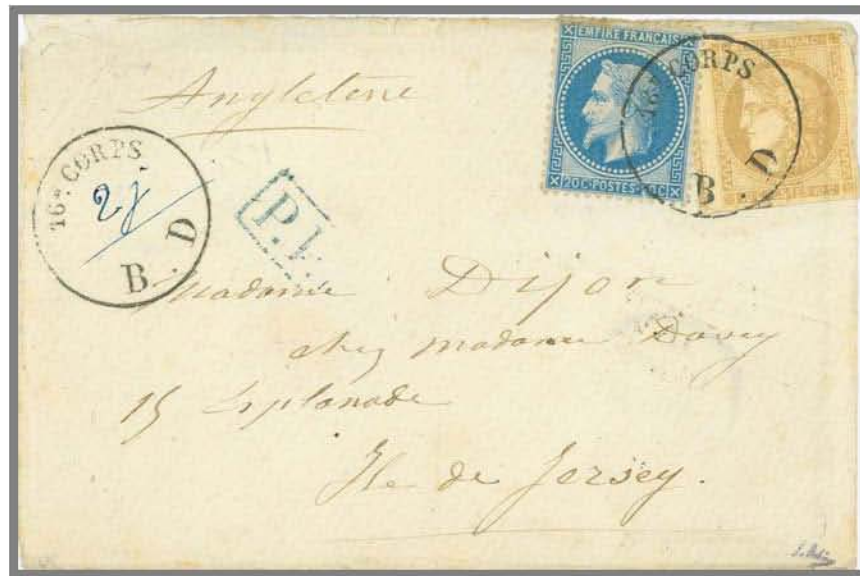 Angleterre
EMPIRE FRANÇAIS
20C POSTES 20C
16e CORPS
B. D
16e CORPS
2 j
B. D
Madame Dijon
chez madame Davey
15 Esplanade
Ile de Jersey.